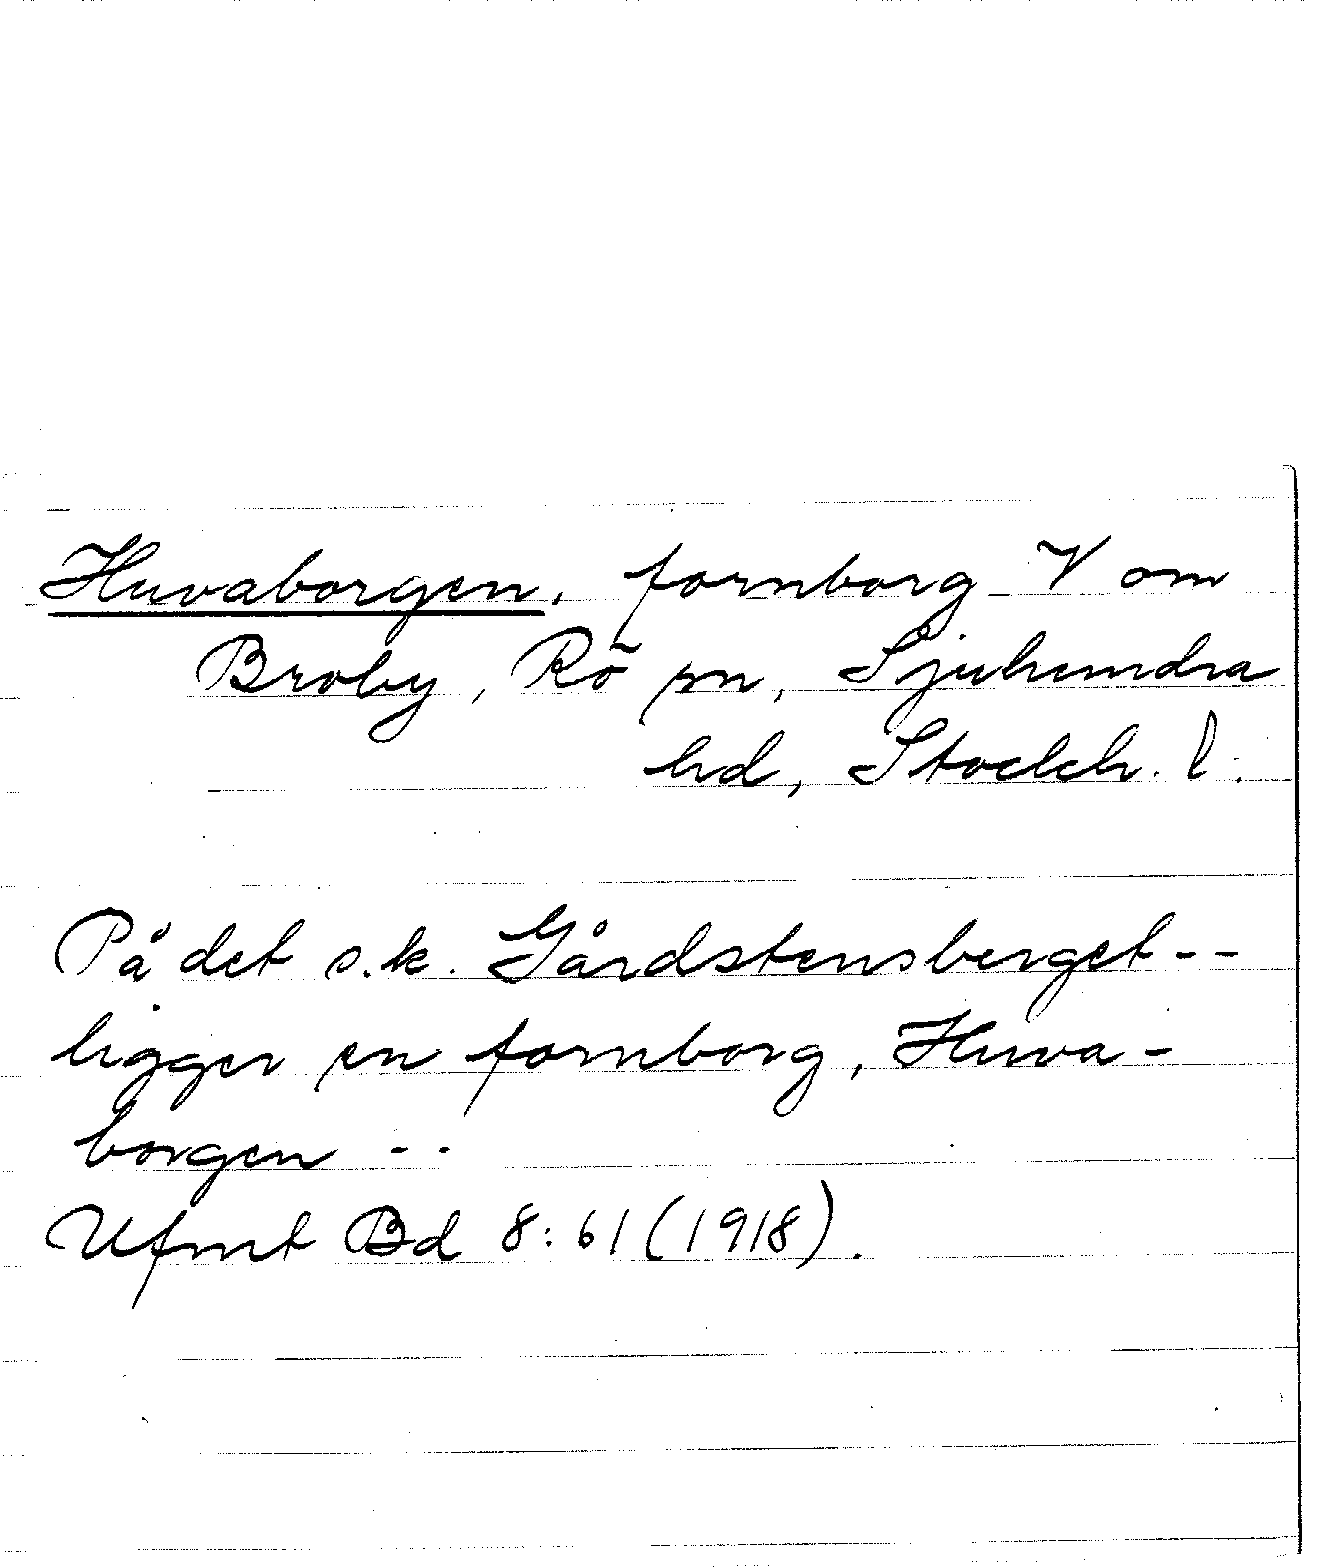 Huvaborgen, fornborg V om
Broby, Rö sn, Sjuhundra
hd, Stockh. l.
På det s.k. Gårdstensberget --
ligger en fornborg, Huva-
borgen --
Ufmt Bd 8:61 (1918).